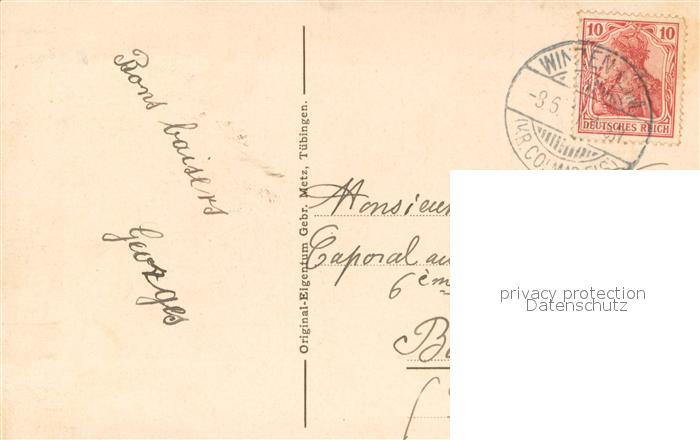 Bons baisers
Georges
Original-Eigentum Gebr. Metz, Tübingen.
10 10
DEUTSCHES REICH
WINZEN
-3.6.
(KR. COLMAR ELS)
Monsieur
Caporal au
6ème
privacy protection
Datenschutz